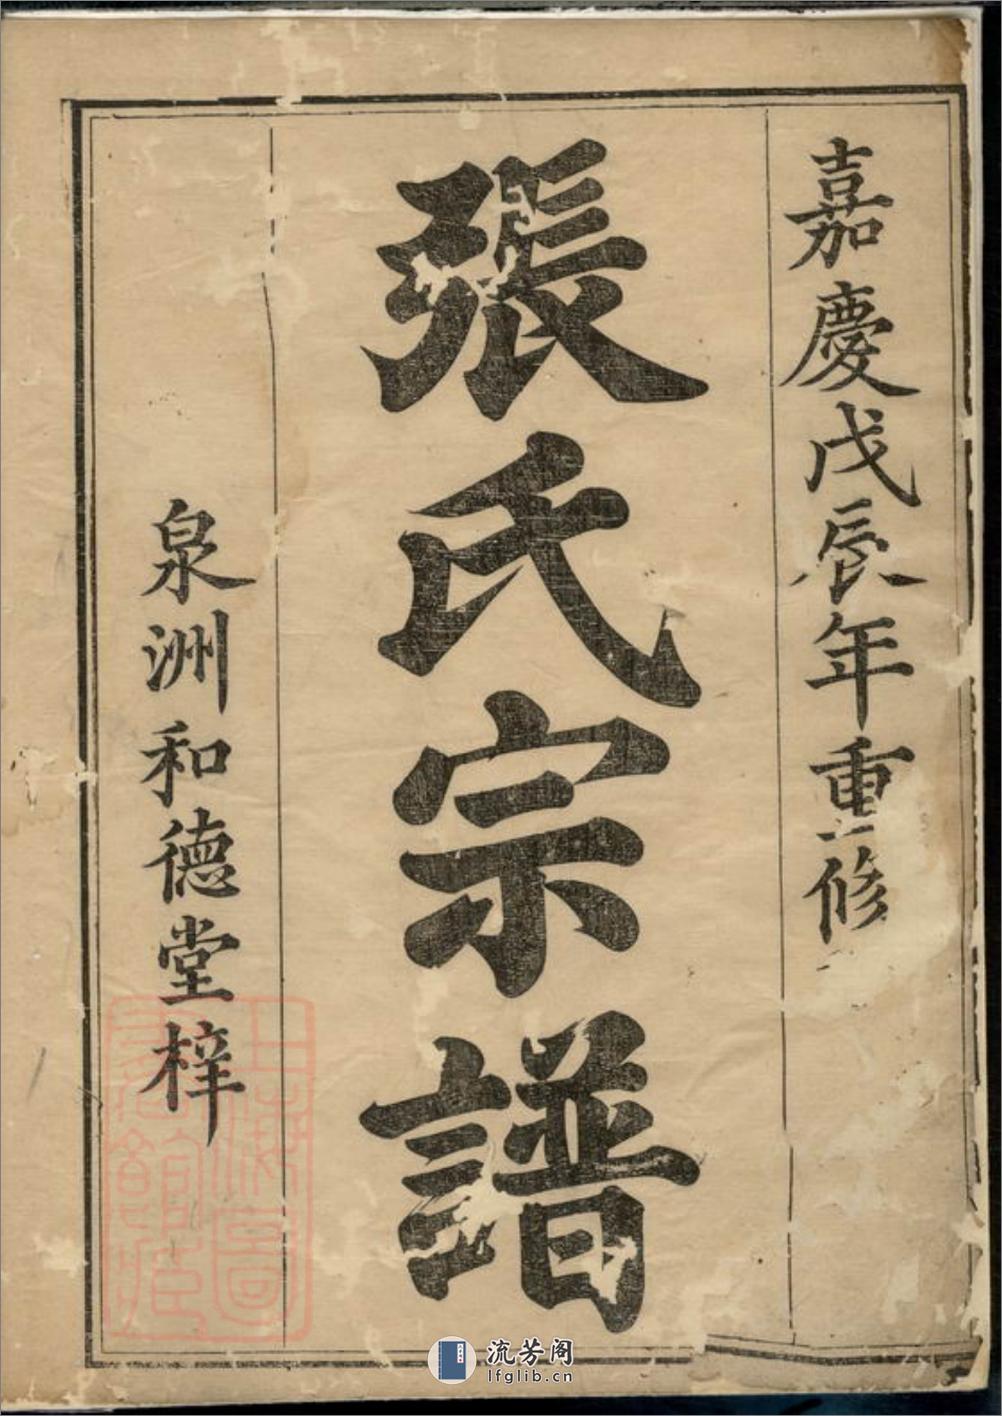 嘉慶戊辰年重修
張氏宗譜
泉洲和德堂梓
上海圖書館藏
流芳阁
lfglib.cn